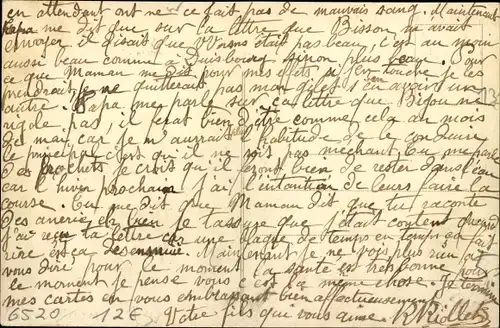 en attendant ont ne ce fait pas de mauvais sang. Maintenant
Papa me dit que sur la lettre que Bisson m'avait
envoyer il disait que n'était pas beau, c'est au moin
aussi beau comme a Duisbourg sinon plus beau. Pour
ce que Maman me dit pour mes effets a je les
prendrait je ne quitterait pas mon gilet s'en avoir un
autre. Papa me parle sur ca lettre que Bijou ne
rigole pas, il serait bien d'être comme cela au mois
de mai car je m'aurait l'habitude de le conduire
le principal c'est qu'il ne soit pas méchant. Tu me parle
des brochets je crois qu'il feront bien de rester dans l'eau
car l'hiver prochain j'ai l'intention de leurs faire la
course. Tu me dit que Maman dit que tu raconte
des anerie eh bien je t'assure que j'était content quand
j'ai reçu ta lettre car une blague de temps en temps en fait
rire et ça désennuie. Maintenant je ne vois plus rien a
vous dire pour le moment la santé est bonne pour
le moment je pense vous c'est la même chose. Je termine
mes cartes en vous embrassant bien affectueusement
6520 12€ Votre fils que vous aime.